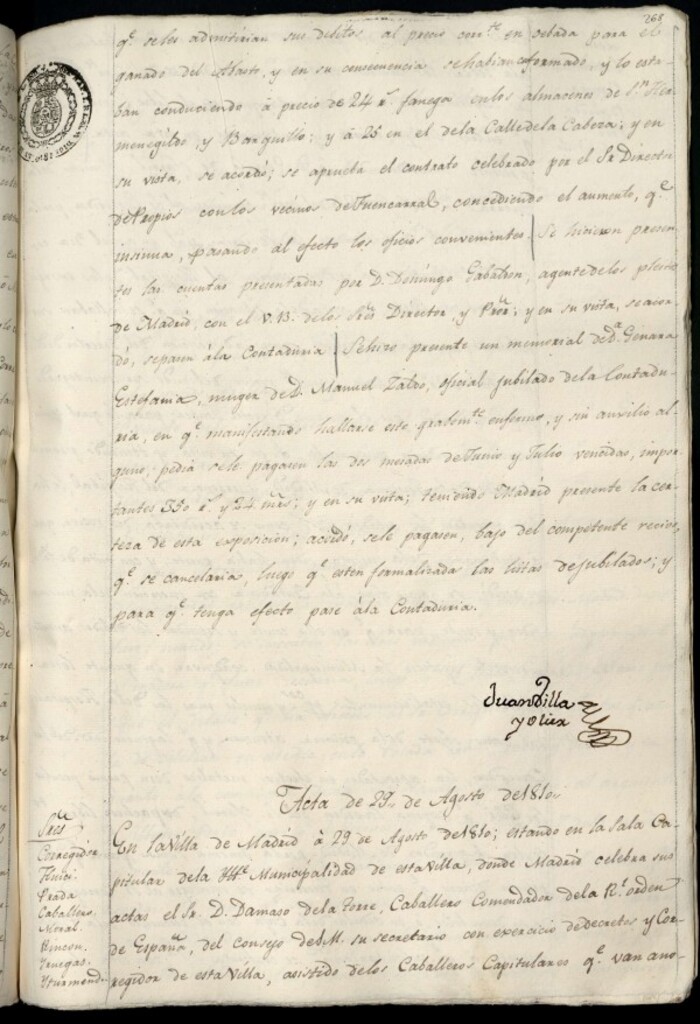 268
q.e se les admitirian sus debitos al precio corr.te en cebada para el
ganado del Abasto, y en su consecuencia se habian conformado, y lo esta-
ban conduciendo à precio de 24 r.s fanega en los almacenes de S.n Her
menegildo, y Barquillo; y à 25 en el de la Calle de la Cabeza; y en
su vista, se acordó; se aprueba el contrato celebrado por el Sr. Director
de Propios con los vecinos de Fuencarral, concediendo el aumento, q.e
insinua, pasando al efecto los oficios convenientes. | Se hicieron presen
tes las cuentas presentadas por D. Domingo Gabalron, agente de los pleitos
de Madrid, con el V. B. de los Sres Director, y Pror; y en su vista, se acor
dó, se pasen à la Contaduria. | Se hizo presente un memorial de D.a Genara
Estefania, muger de D. Manuel Zaldo, oficial jubilado de la Contadu-
ria, en q.e manifestando hallarse este grabem.te enfermo, y sin auxilio al-
guno, pedia se le pagasen las dos mesadas de Junio y Julio vencidas, impor-
tantes 350 r.s y 24 mrs; y en su vista; teniendo Madrid presente la cer-
teza de esta exposicion; acordó, se le pagasen, bajo del competente recivo,
q.e se cancelaria, luego q.e esten formalizada las listas de jubilados; y
para q.e tenga efecto pase à la Contaduria.
Juan Villa
y Olier
Acta de 29 de Agosto de 1810.
Sres
Corregidor
Huici
Prada
Caballero
Moral.
Rincon.
Yruegas.
Yturmend.
En la Villa de Madrid à 29 de Agosto de 1810; estando en la Sala Ca-
pitular de la Ille Municipalidad de esta Villa, donde Madrid celebra sus
actas el Sr. D. Damaso de la Torre, Caballero Comendador de la R.l orden
de España, del Consejo de S.M. su secretario con exercicio de decretos y Cor-
regidor de esta Villa, asistido de los Caballeros Capitulares q.e van ano-